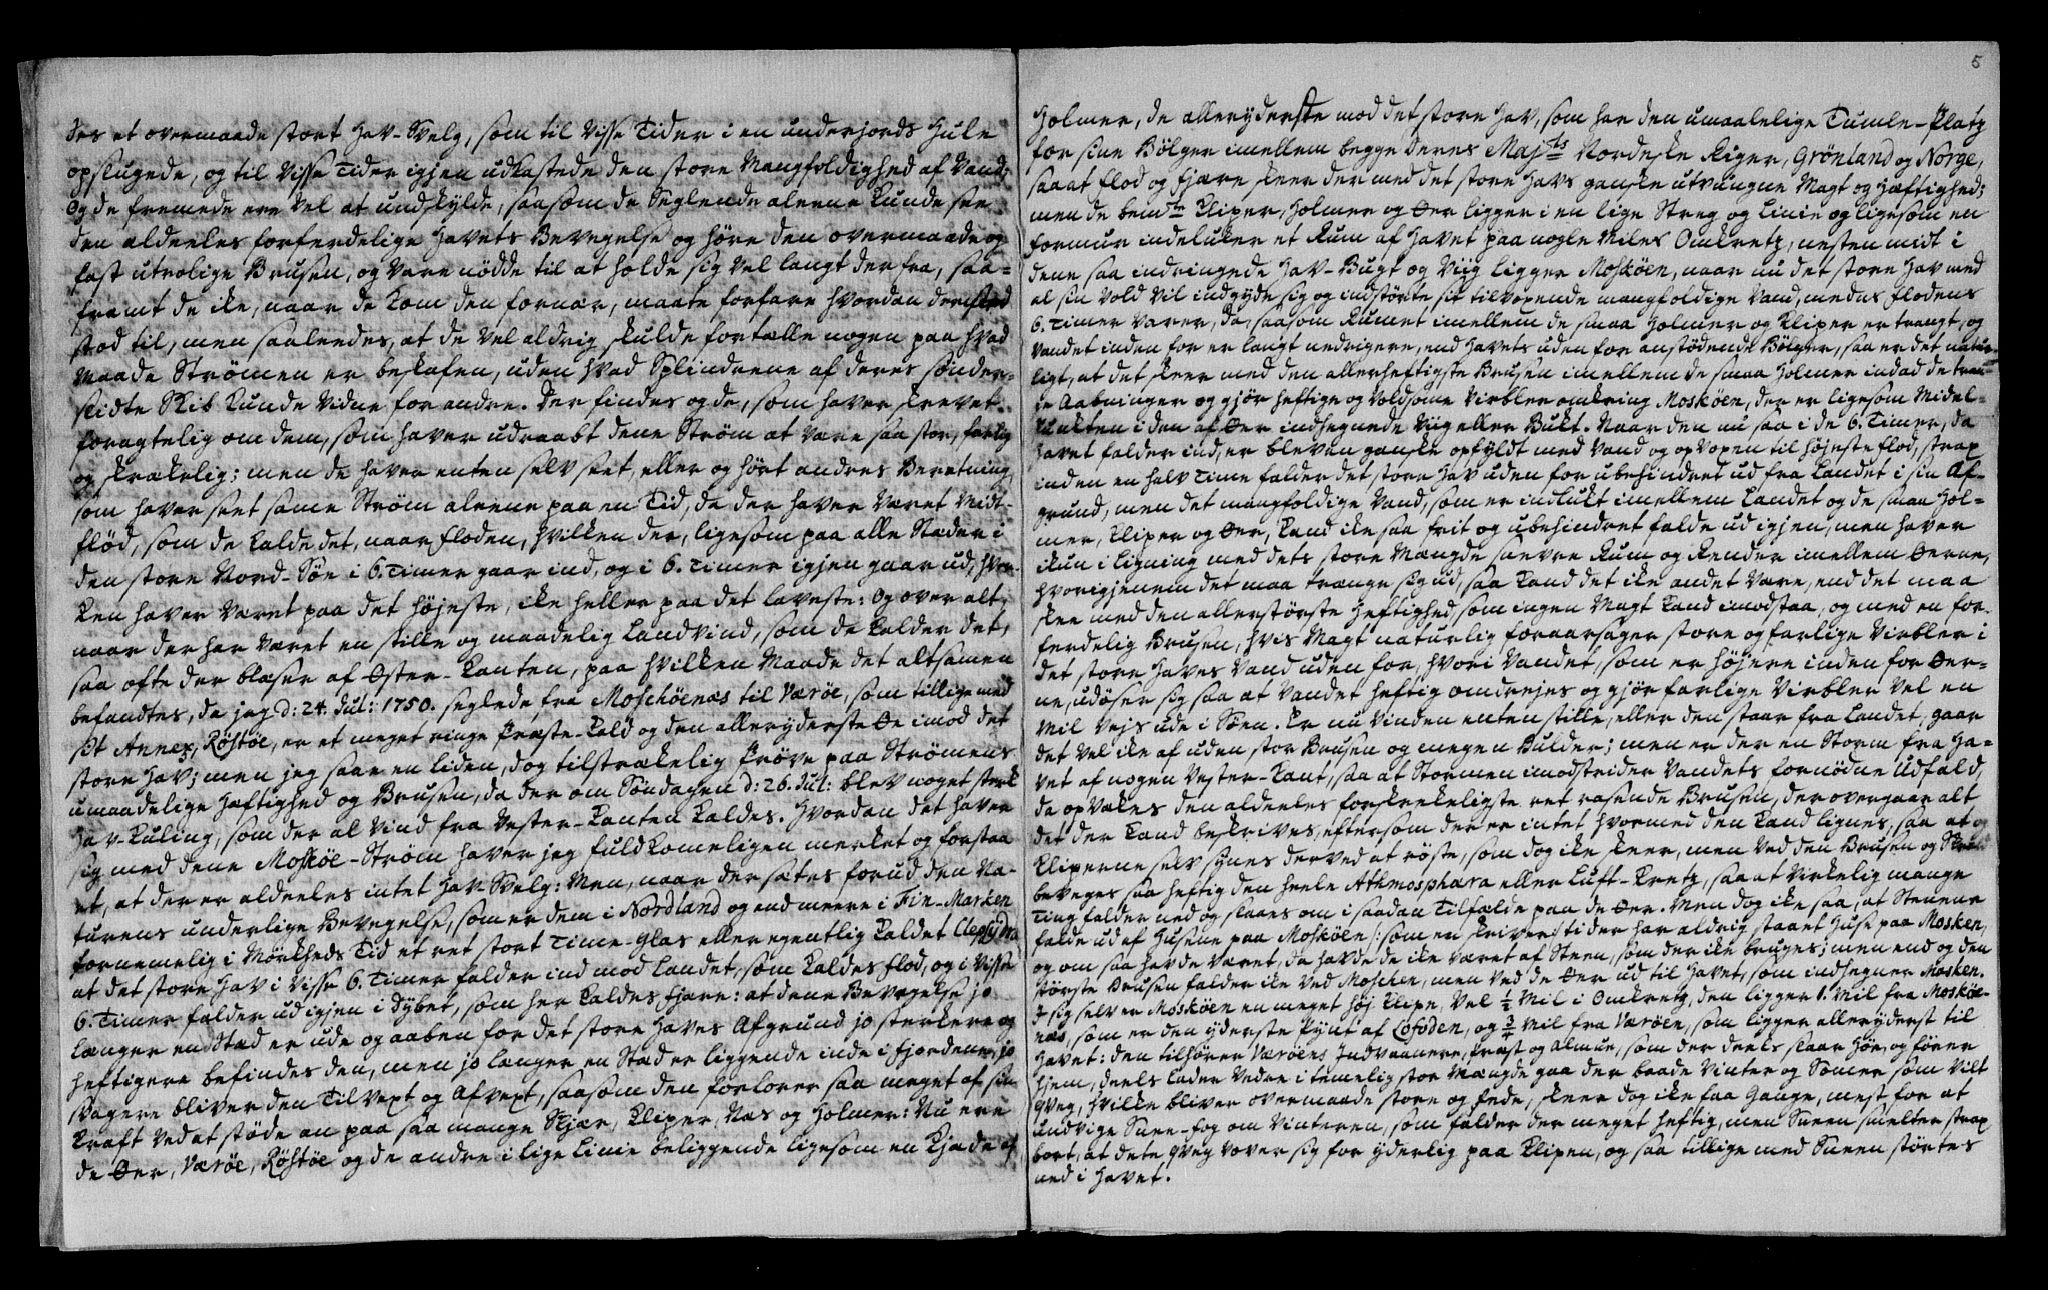 des et overmaade stort Hav-Svelg, som til visse Tider i en underjords Hule
opslugede, og til visse Tider igjen udkastede den store Mangfoldighed af Vand;
Og de fremmede ere vel at undskylde, saasom de Seglende alene kunde see
den aldeeles forferdelige Havets Bevegelse og høre den overmaade og
fast utrolige Brusen, og vare nødde til at holde sig vel langt derfra, saa=
fremt de ike, naar de kom den fornær, maate forfare hvordan dermed
stod til, men saaleedes, at de vel aldrig skulde fortælle nogen paa hvad
Maade Strømen er beskafen, uden hvad Splindrene af deres sønder=
slidte Skib kunde vidne for andre. Der findes og de, som haver skrevet
foragtelig om dem, som haver udraabt dene Strøm at være saa stor, farlig
og skrækelig; men de haver enten selv seet, eller og hørt andres Beretning
som haver seet same Strøm aleene paa en Tid, da der haver været Midt-
flød, som de kalde det, naar Floden, hvilken der, ligesom paa alle Stæder i
den store Nord-Søe i 6. Timer gaar ind, og i 6. Timer igjen gaar ud, hver-
ken haver været paa det højeste, ike heller paa det laveste: Og over alt,
naar der har været en stille og maadelig Landvind, som de kalder det,
saa ofte der blæser af Øster-Kanten, paa hvilken Maade det altsamen
befandtes, da jeg d: 24. Jul: 1750. seglede fra Moschöenæs til Værøe, som tillige med
sit Annex, Røstøe, er et meget ringe Præste-Kald og den alleryderste Øe imod det
store Hav; men jeg saae en liden, dog tilstrækelig Prøve paa Strømens
umaadelige Hæftighed og Brusen, da der om Søndagen d: 26. Jul: blev noget sterk
Hav-Kuling, som der al Vind fra Vester-Kanten kaldes. Hvordan det haver
sig med dene Moskøe-Strøm haver jeg fuldkomeligen merket og forstaa
et, at der er aldeeles intet Hav-Svelg: Men, naar der sætes forud den Na-
turens underlige Bevegelse, som er dem i Nordland og end meere i Fin-Marken
fornemelig i Mørkheds Tid et ret stort Time-Glas eller egentlig kaldet Clepsydra
at det store Hav i visse 6. Timer falder ind mod Landet, som kaldes Flod, og i visse
6. Timer falder ud igjen i Dybet, som her kaldes Fjære: at dene Bevegelse jo
længer endstæd er ude og aaben for det store Haves Afgrund jo sterkere og
heftigere befindes den, men jo længer en Stæd er liggende inde i Fjordene, jo
svagere bliver den Tilvext og Afvext, saasom den forlorer saa meget af sin
Kraft ved at støde an paa saa mange Skjær, Kliper, Næs og Holmer: Nu ere
de Øer, Værøe, Røstøe og de andre i lige Linie beliggende ligesom en Kjæde af
5
Holmer, de alleryderste mod det store Hav, som har den umaalelige Tumle-Platz
for sine Bølger imellem begge deres Majts Nordeske Riger, Grønland og Norge,
saa at Flod og Fjære skeer der med det store Havs ganske utvungne Magt og Hæftighed;
men de bemte Kliper, Holmer og Øer ligger i en lige Streg og Linie og ligesom en
formur indeluker et Rum af Havet paa nogle Miles Omkretz, nesten midt i
dene saa indringede Hav-Bugt og Viig ligger Moskøen, naar nu det store Hav med
al sin Vold vil indgyde sig og indstørte sit tilvoxende mangfoldige Vand, medens Flodens
6. Timer varer, da, saasom Rumet imellem de smaa Holmer og Kliper er trangt, og
Vandet inden for er langt nedrigere, end Havets uden for anstødende Bølger, saa er det natur=
ligt, at det skeer med den allerheftigste Brusen imellem de smaa Holmer ind ad de tran=
ge Aabninger og gjør heftige og voldsome Virbler omkring Moskøen, der er ligesom Midel=
Punkten i den af Øer indhegnede Viig eller Bukt. Naar den nu saa i de 6. Timer, da
Havet falder ind, er bleven ganske opfyldt med Vand og opvoxen til højeste Flod, strax
inden en halv Time falder det store Hav uden for ubehindret ud fra Landet i sin Af-
grund, men det mangfoldige Vand, som er indlukt imellem Landet og de smaa Hol=
mer, Kliper og Øer, kand ike saa frit og ubehindret falde ud igjen, men haver
ikun i ligning med dets store Mængde snevre Rum og Render imellem Øerne,
hvorigjenem det maa trænge sig ud, saa kand det ike andet være, end det maa
skee med den allerstørste Heftighed, som ingen Magt kand imodstaa, og med en for-
ferdelig Brusen, hvis Magt naturlig foraarsager store og farlige Virbler i
det store Haves Vand uden for, hvori Vandet, som er højere inden for Øer=
ne, udøser sig saa at Vandet heftig omdrejes og gjør farlige Virbler vel en
Mil Vejs ude i Søen. Er nu Vinden enten stille, eller den staar fra Landet, gaar
det vel ike af uden stor Brusen og megen Bulder; men er der en Storm fra Ha=
vet af nogen Vester-Kant, saa at Stormen imodstrider Vandets fornødne Udfald,
da opvækes den aldeeles forskrekeligste ret rasende Brusen, der overgaar alt
det der kand beskrives, eftersom der er intet hvormed den kand lignes, saa at og
Kliperne selv synes derved at røste, som dog ike skeer, men ved den Brusen og
beveges saa heftig den heele Athmosphæra eller Luft-Kretz, saa at virkelig mange
Ting falder ned og slaaes om i saadan Tilfælde paa de Øer. Men dog ike saa, at Steenene
falde ud af Husene paa Moskøen |: som en skriver :| ti der har aldrig staaet Huse paa Mosken,
og om saa havde været, da havde de ike været af Steen, som der ike bruges; men end og den
største Brusen falder ike ved Moschen, men ved de Øer ud til Havet, som indhegner Mosken.
I sig selv er Moskøen en meget høj Klipe, vel ½ Mil i Omkretz, den ligger 1. Mil fra Moskøe-
næs, som er den yderste Pynt af Lofoden, og ¾ Mil fra Værøen, som ligger alleryderst til
Havet: den tilhører Værøens Indvaanere, Præst og Almue, som der deels slaar Høe, og fører
hjem, deels lader Vedre i temelig stor Mængde gaa der baade Vinter og Somer som Vilt
Qveg, hvilke bliver overmaade store og fede, skeer dog ike faa Gange, mest for at
undvige Snee-fog om Vinteren, som falder der meget heftig, men Sneen smelter strax
bort, at dete Qveg vover sig for yderlig paa Klipen, og saa tillige med Sneen størtes
ned i Havet.